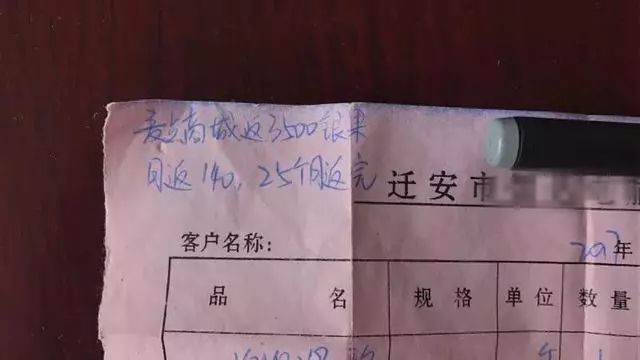 麦点商城返3500银果
月返140，25个月返完
迁安市
客户名称：
2017年
品 名
规 格
单 位
数 量